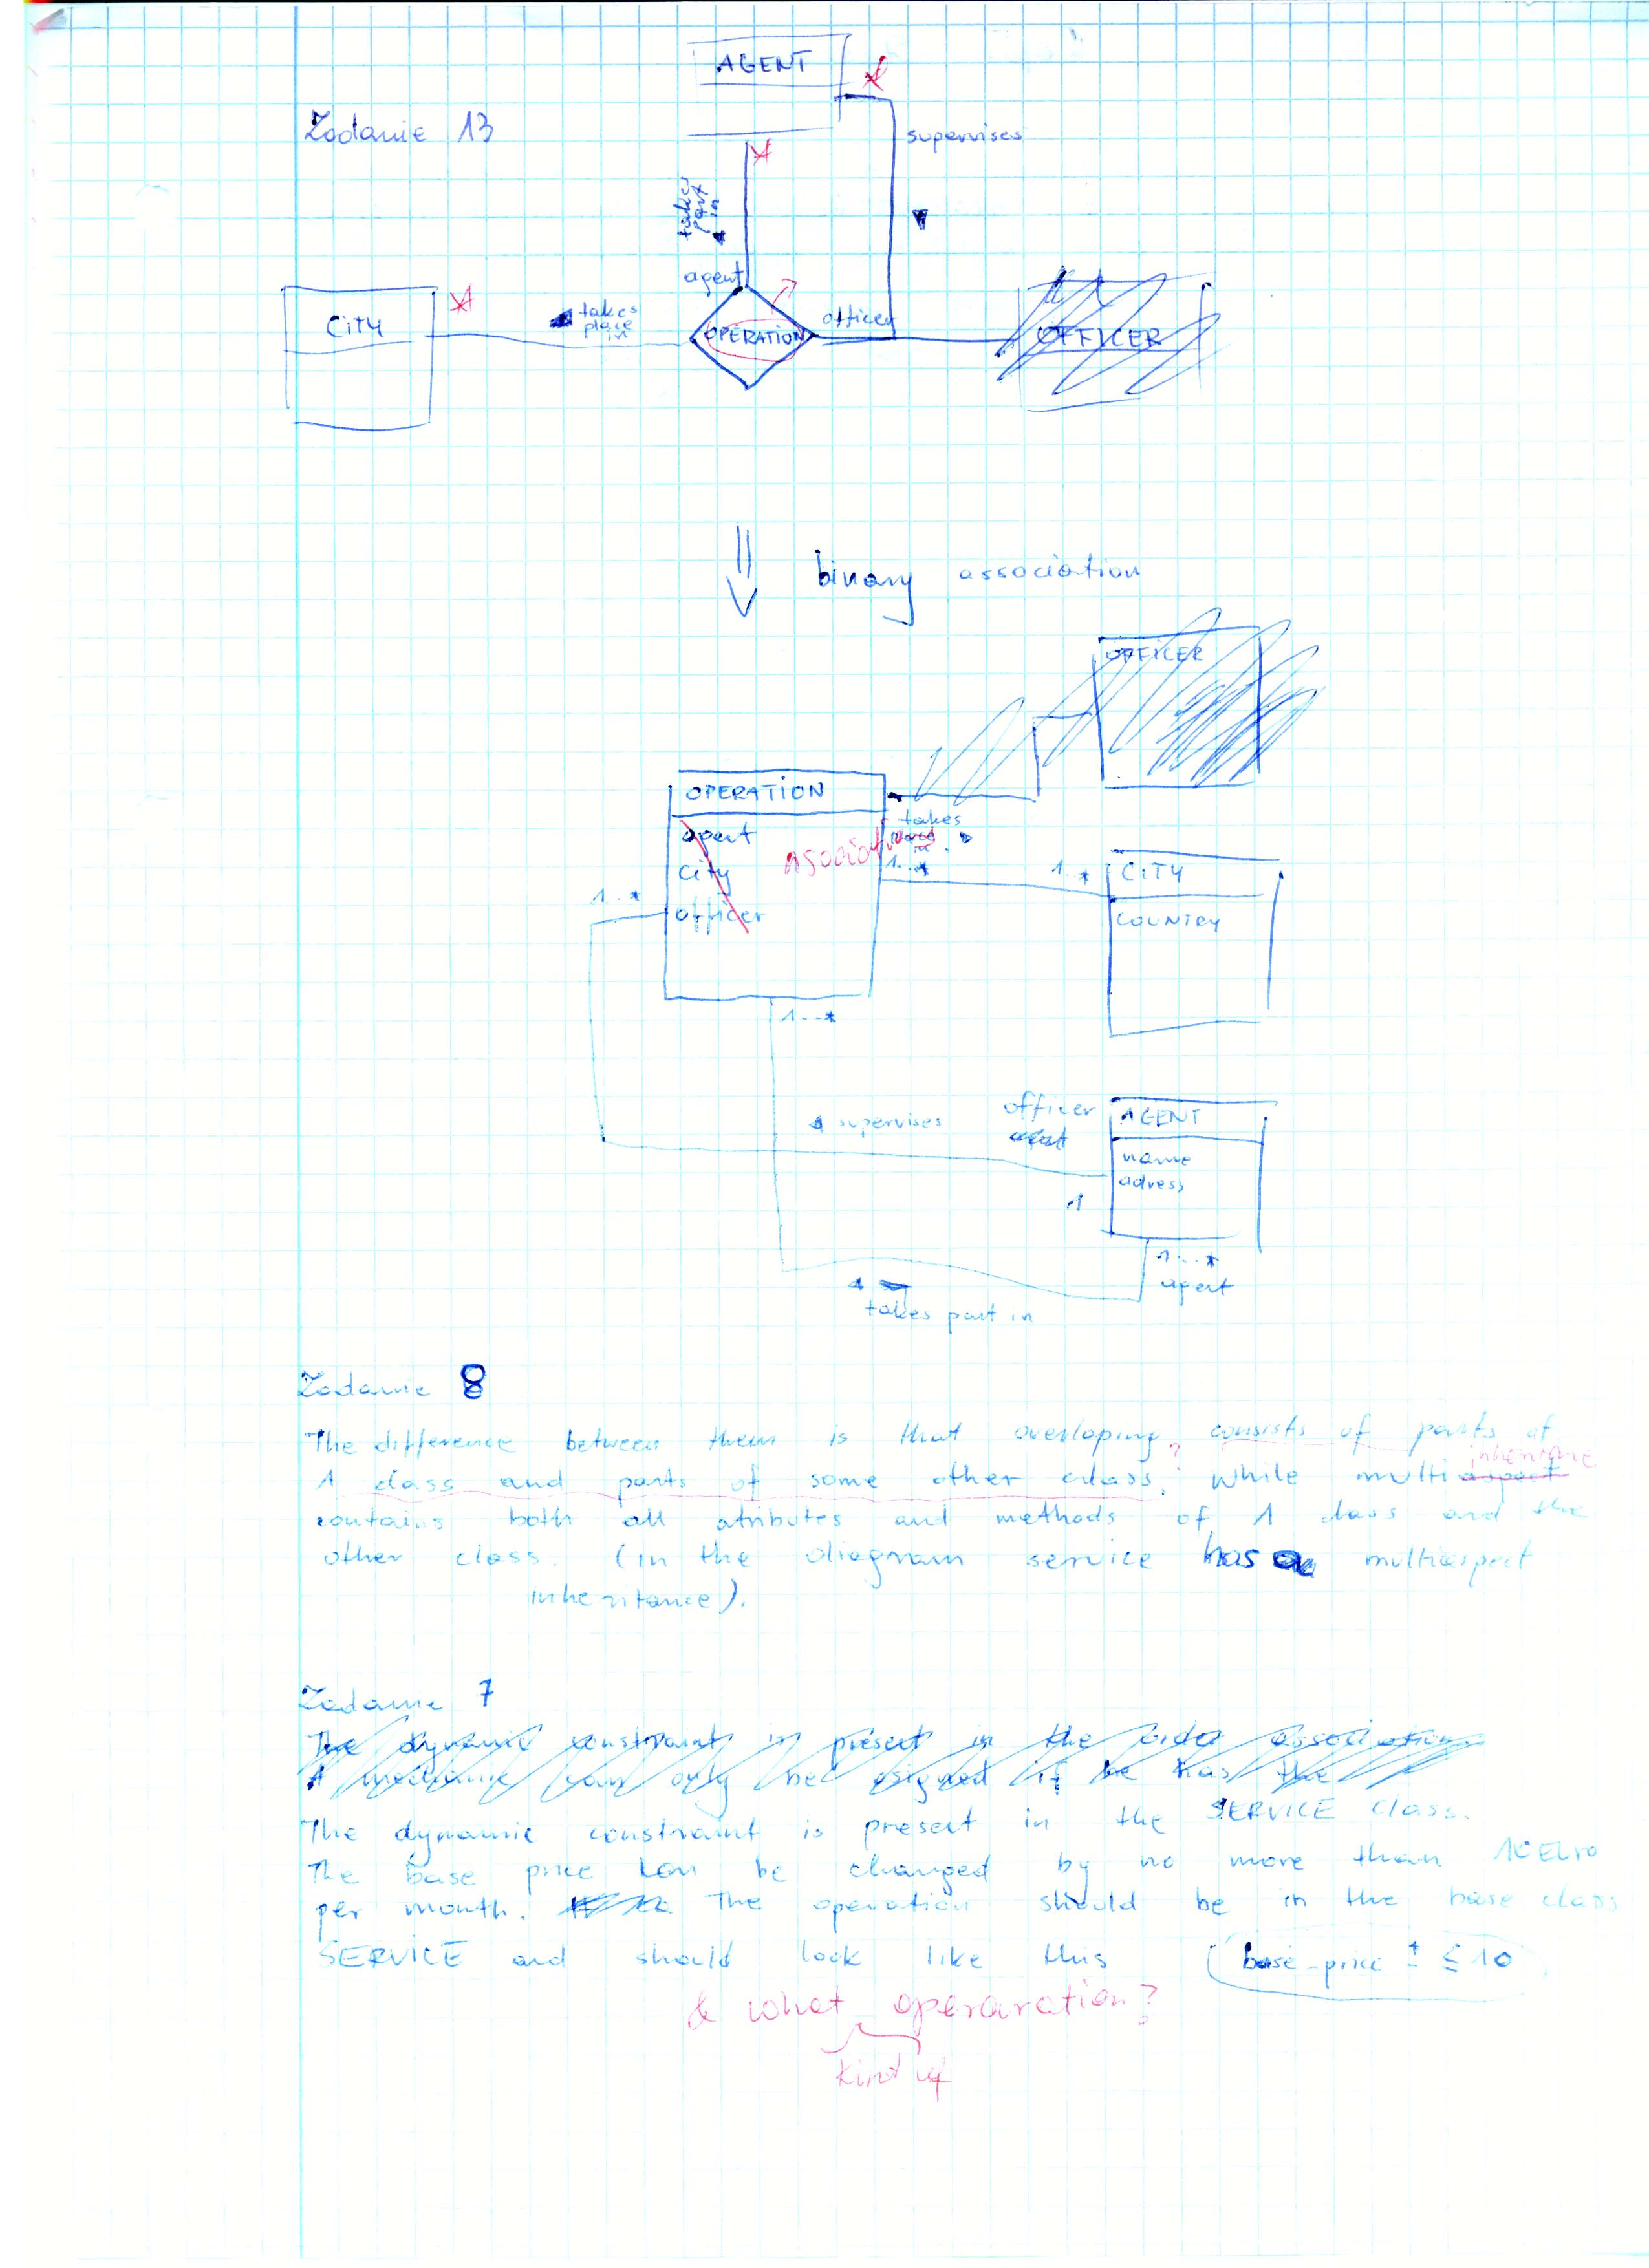 AGENT
Zadanie 13
supervises
takes
part
in
agent
CITY
takes
place
in
OPERATION
officer
OFFICER
binary association
OFFICER
OPERATION
agent
city
officer
takes
in
1..*
1..*
1..*
CITY
COUNTRY
1..*
supervises
officer
AGENT
name
adress
1
1...*
agent
takes part in
Zadanie 8
The difference between them is that overloping ? consists of parts of
1 class and parts of some other class, while multiaspect inheritance
contains both all atributes and methods of 1 class and the
other class. (in the diagram service has a multiaspect
inheritance).
Zadanie 7
The dynamic constraint is present in the order association
A mechanic can only be asigned if he has the
The dynamic constraint is present in the SERVICE class.
The base price can be changed by no more than 10 Euro
per month. The operation should be in the base class
SERVICE and should look like this (base-price ± ≤ 10
& what operaration?
kind of